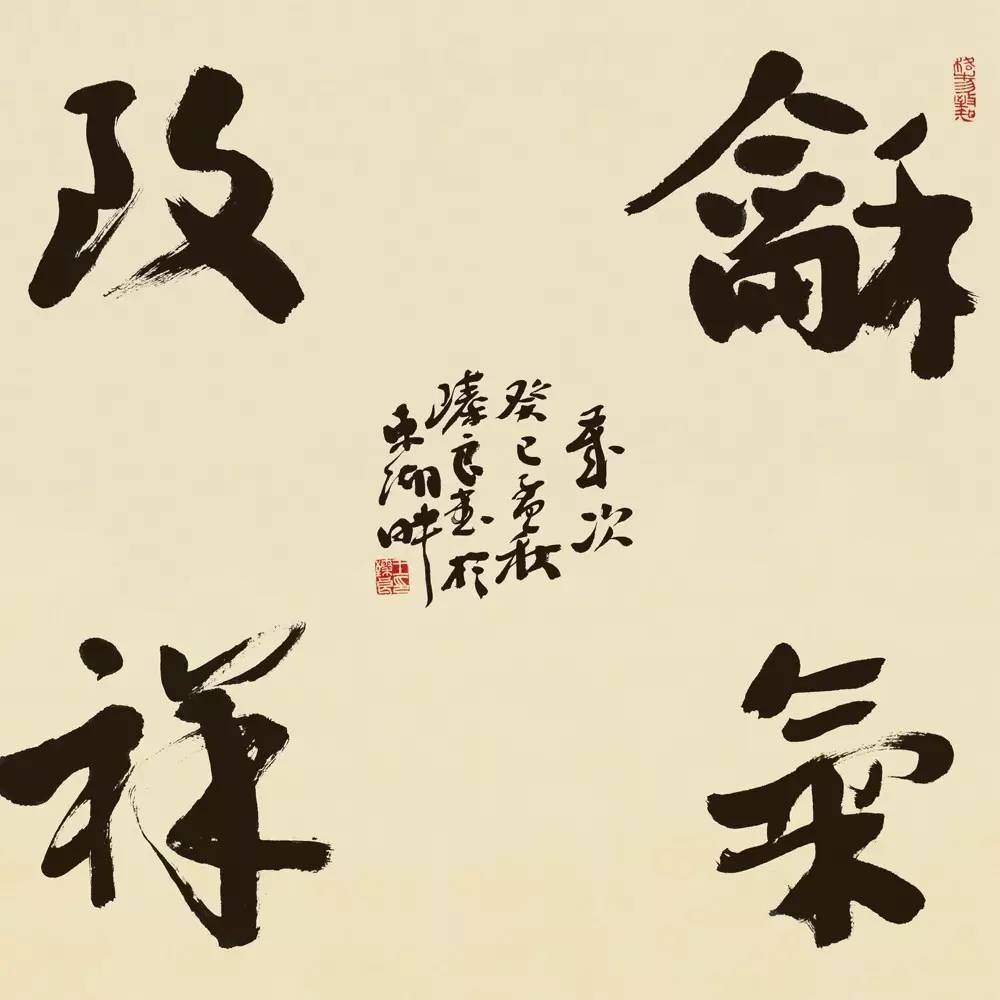 龢氣
致祥
歲次
癸巳孟秋
瑧良書於
東湖畔